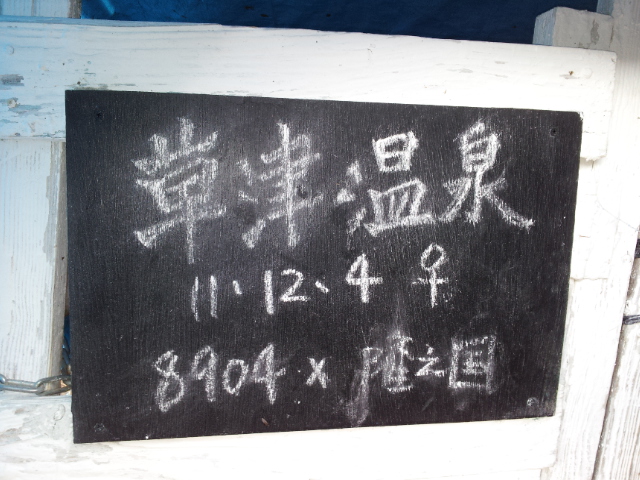 草津温泉
11、12、4 ♀
8904 x 陸之国